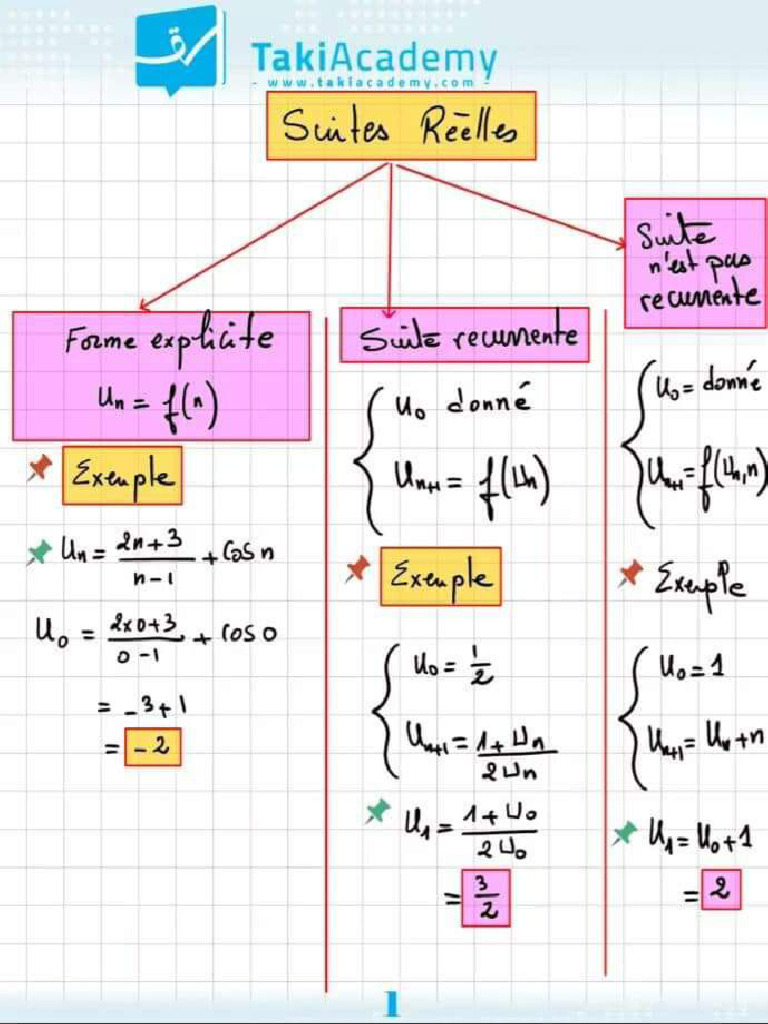 TakiAcademy
- www.takiacademy.com -
Suites Réelles
Forme explicite
Un = f(n)
Exemple
Un = (2n+3)/(n-1) + Cosn
U0 = (2x0+3)/(0-1) + cos0
= -3+1
= -2
Suite recurrente
U0 donné
Un+1 = f(Un)
Exemple
U0 = 1/2
Un+1 = (1+Un)/(2Un)
U1 = (1+U0)/(2U0)
= 3/2
Suite
n'est pas
recurrente
U0 = donné
Un+1 = f(Un,n)
Exemple
U0 = 1
Un+1 = Un+n
U1 = U0+1
= 2
1